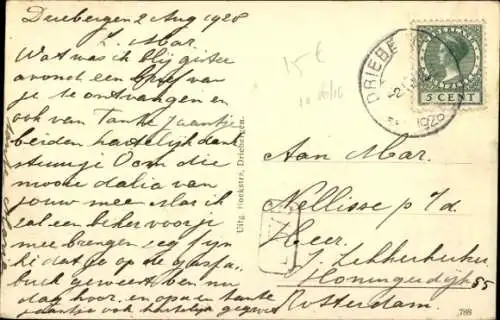 Driebergen 2 Aug 1928
L. Mar.
Wat was ik blij gister
avond een brief van
je te ontvangen en
ook van Tante Jaantje
beiden hartelijk dank
stuurtje Oom die
mooie dalia van
jouw mee Mar ik
zal een beker voor je
mee brengen zeg fijn
ki dat je op de gasfa
buck geweest ben nu
dag hoor. en opa en tante
Jaantje ook hartelijk gegroet
Uitg. Hoekstra, Driebergen.
15 €
DRIEBE
1928
NEDERLAND
5 CENT
Aan Mar.
Nellisse p/a.
Heer.
J. Lekkerkerker
Honingerdijk 55
Rotterdam.
788